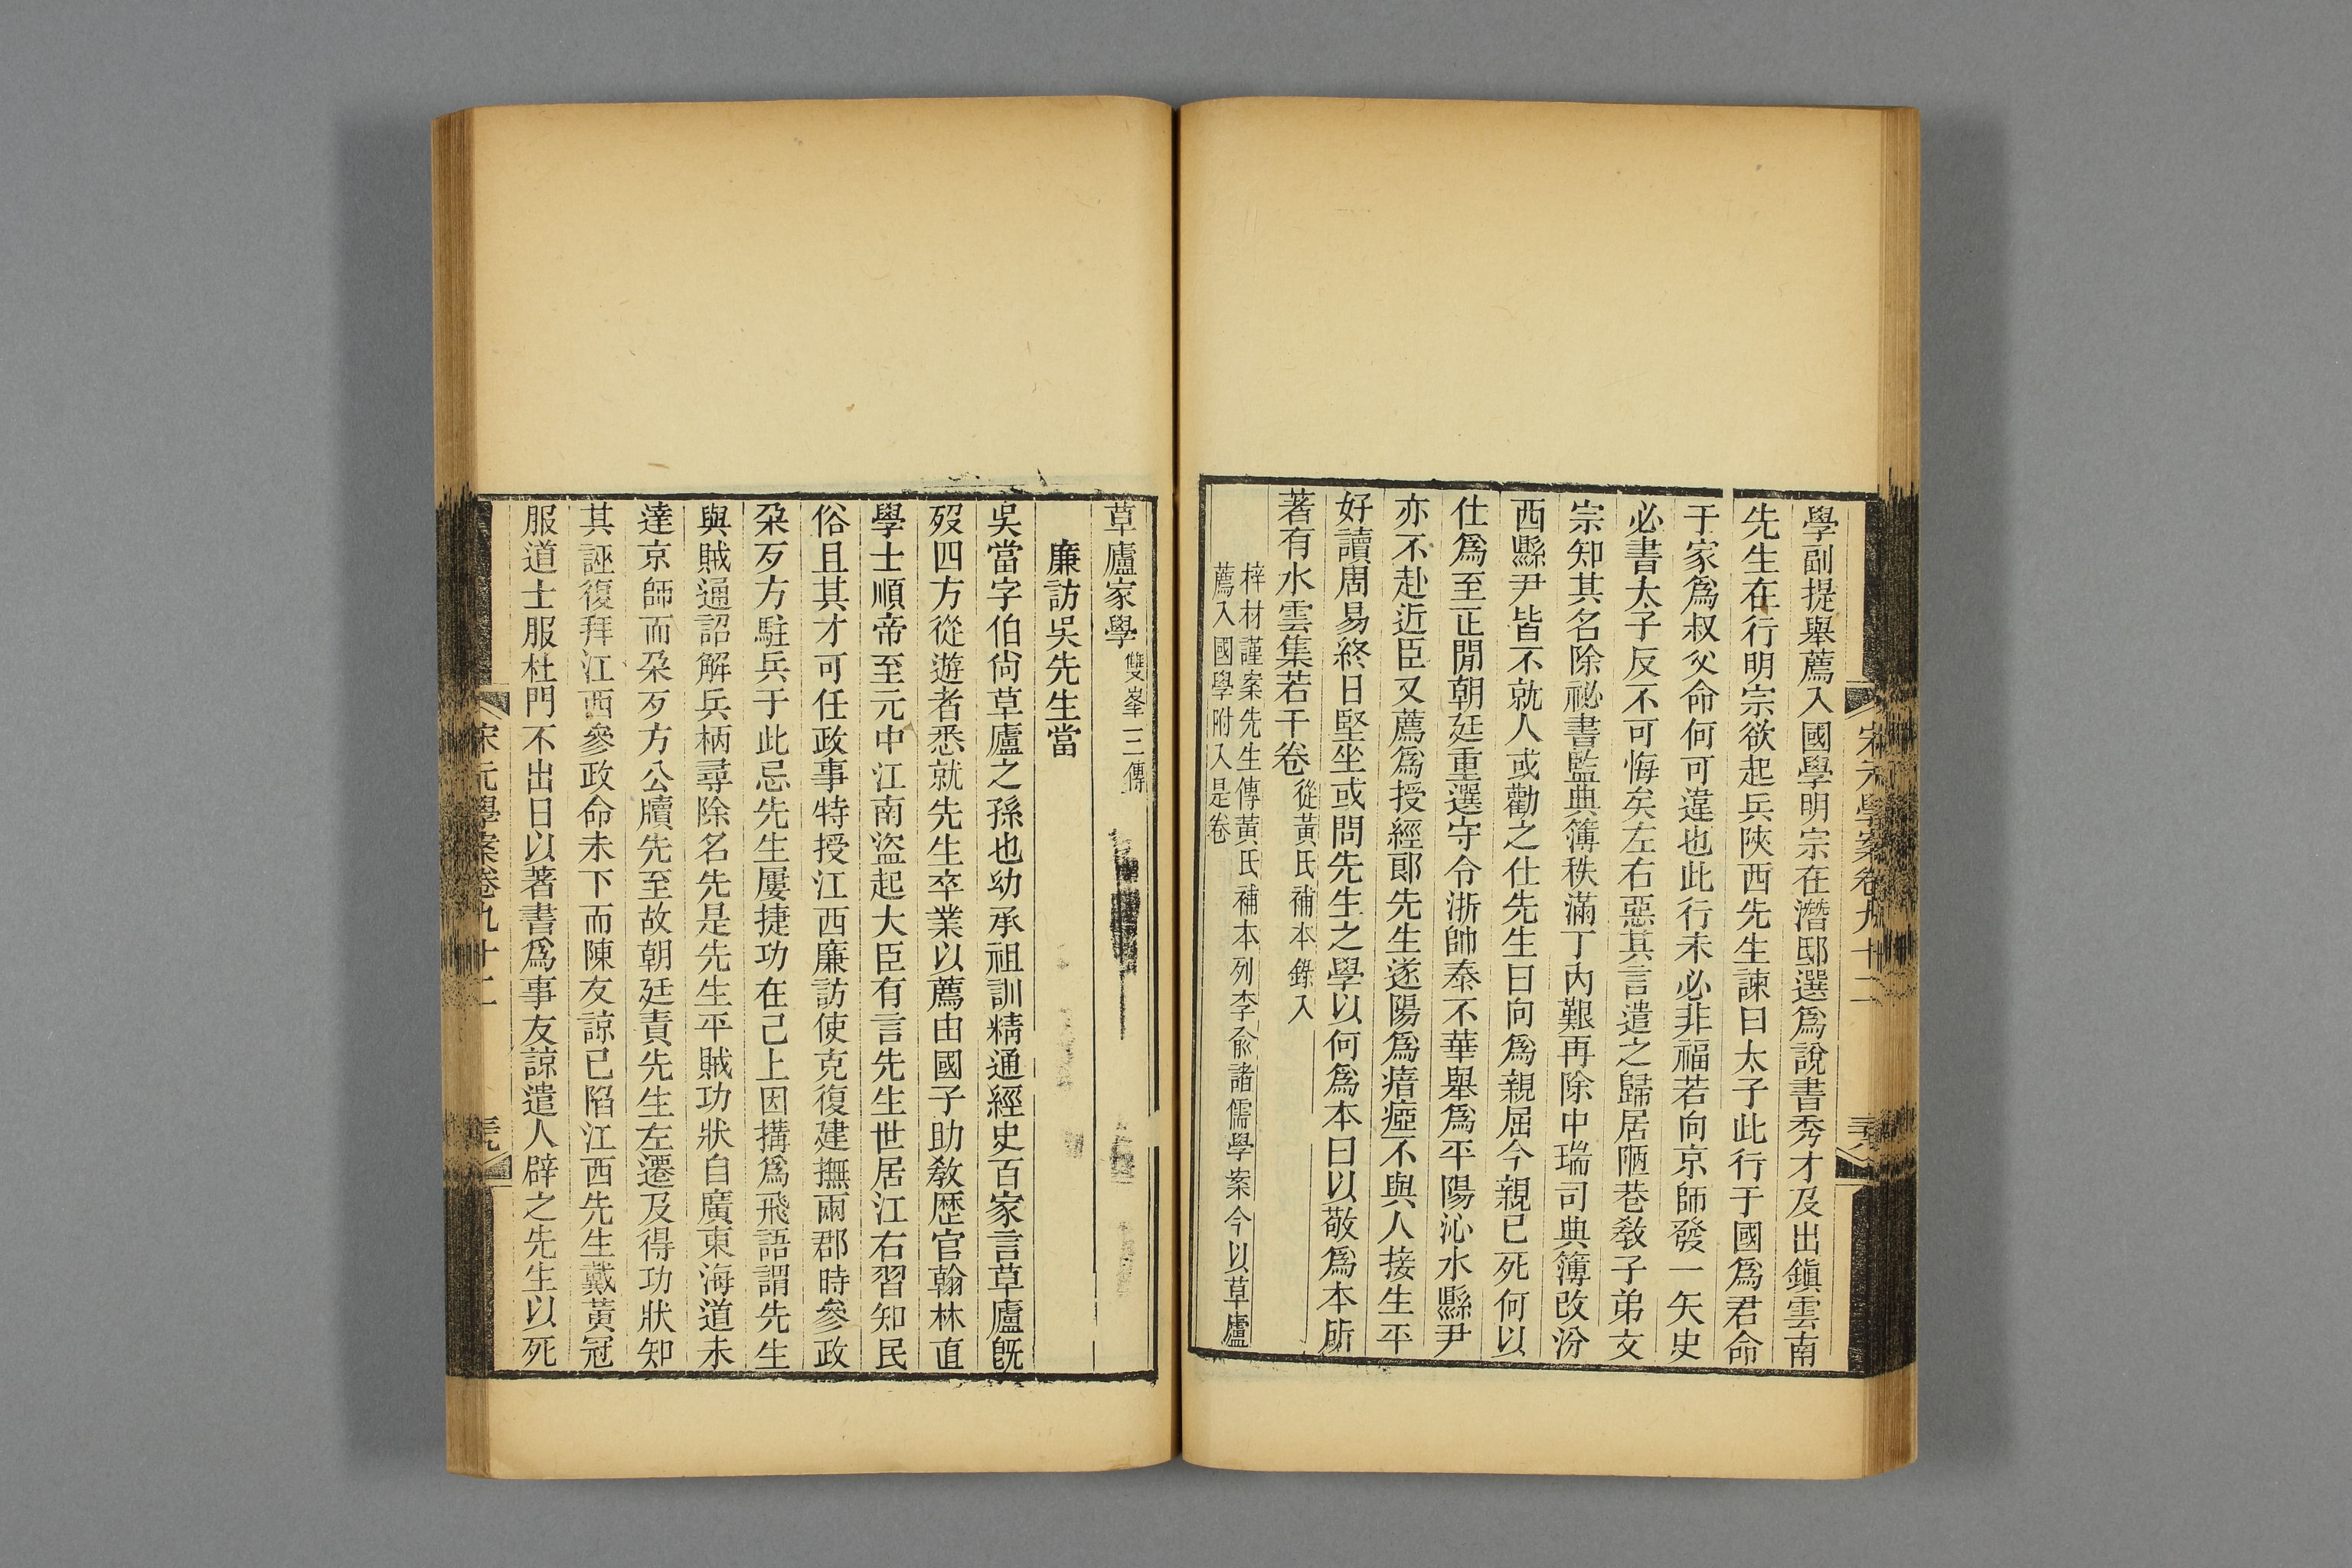 宋元學案卷九十二
學副提舉薦入國學明宗在潛邸選爲說書秀才及出鎭雲南
先生在行明宗欲起兵陝西先生諫曰太子此行于國爲君命
于家爲叔父命何可違也此行未必非福若向京師發一矢史
必書太子反不可悔矣左右惡其言遣之歸居陋巷敎子弟文
宗知其名除祕書監典簿秩滿丁內艱再除中瑞司典簿改汾
西縣尹皆不就人或勸之仕先生曰向爲親屈今親已死何以
仕爲至正閒朝廷重選守令浙帥泰不華舉爲平陽沁水縣尹
亦不赴近臣又薦爲授經郞先生遂陽爲瘖瘂不與人接生平
好讀周易終日堅坐或問先生之學以何爲本曰以敬爲本所
著有水雲集若干卷從黃氏補本錄入
梓材謹案先生傳黃氏補本列李兪諸儒學案今以草廬
薦入國學附入是卷
草廬家學雙峯三傳
廉訪吳先生當
吳當字伯尙草廬之孫也幼承祖訓精通經史百家言草廬旣
歿四方從遊者悉就先生卒業以薦由國子助敎歷官翰林直
學士順帝至元中江南盜起大臣有言先生世居江右習知民
俗且其才可任政事特授江西廉訪使克復建撫兩郡時參政
朶歹方駐兵于此忌先生屢捷功在己上因搆爲飛語謂先生
與賊通詔解兵柄尋除名先是先生平賊功狀自廣東海道未
達京師而朶歹方公牘先至故朝廷責先生左遷及得功狀知
其誣復拜江西參政命未下而陳友諒已陷江西先生戴黃冠
服道士服杜門不出日以著書爲事友諒遣人辟之先生以死
宋元學案卷九十二